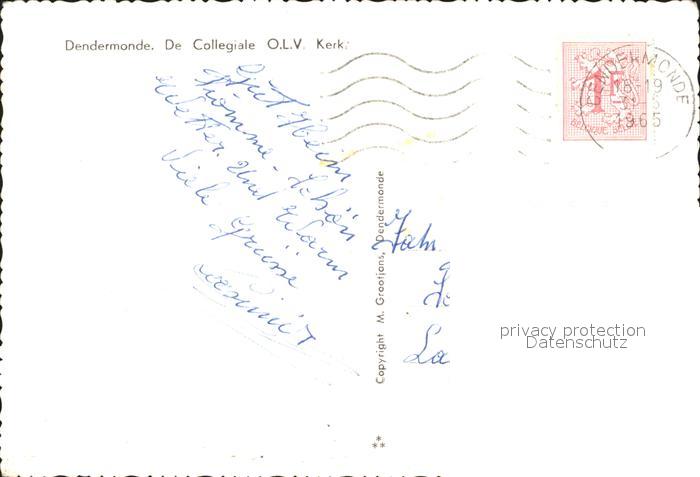 Dendermonde. De Collegiale O.L.V. Kerk.
DENDERMONDE
18-19
1965
1F
BELGIQUE BELGIE
Gut Heim
Komme. Schön
Wetter. Und Warm
Viele Grüsse
Casimir
Copyright M. Grootjans, Dendermonde
La
privacy protection
Datenschutz